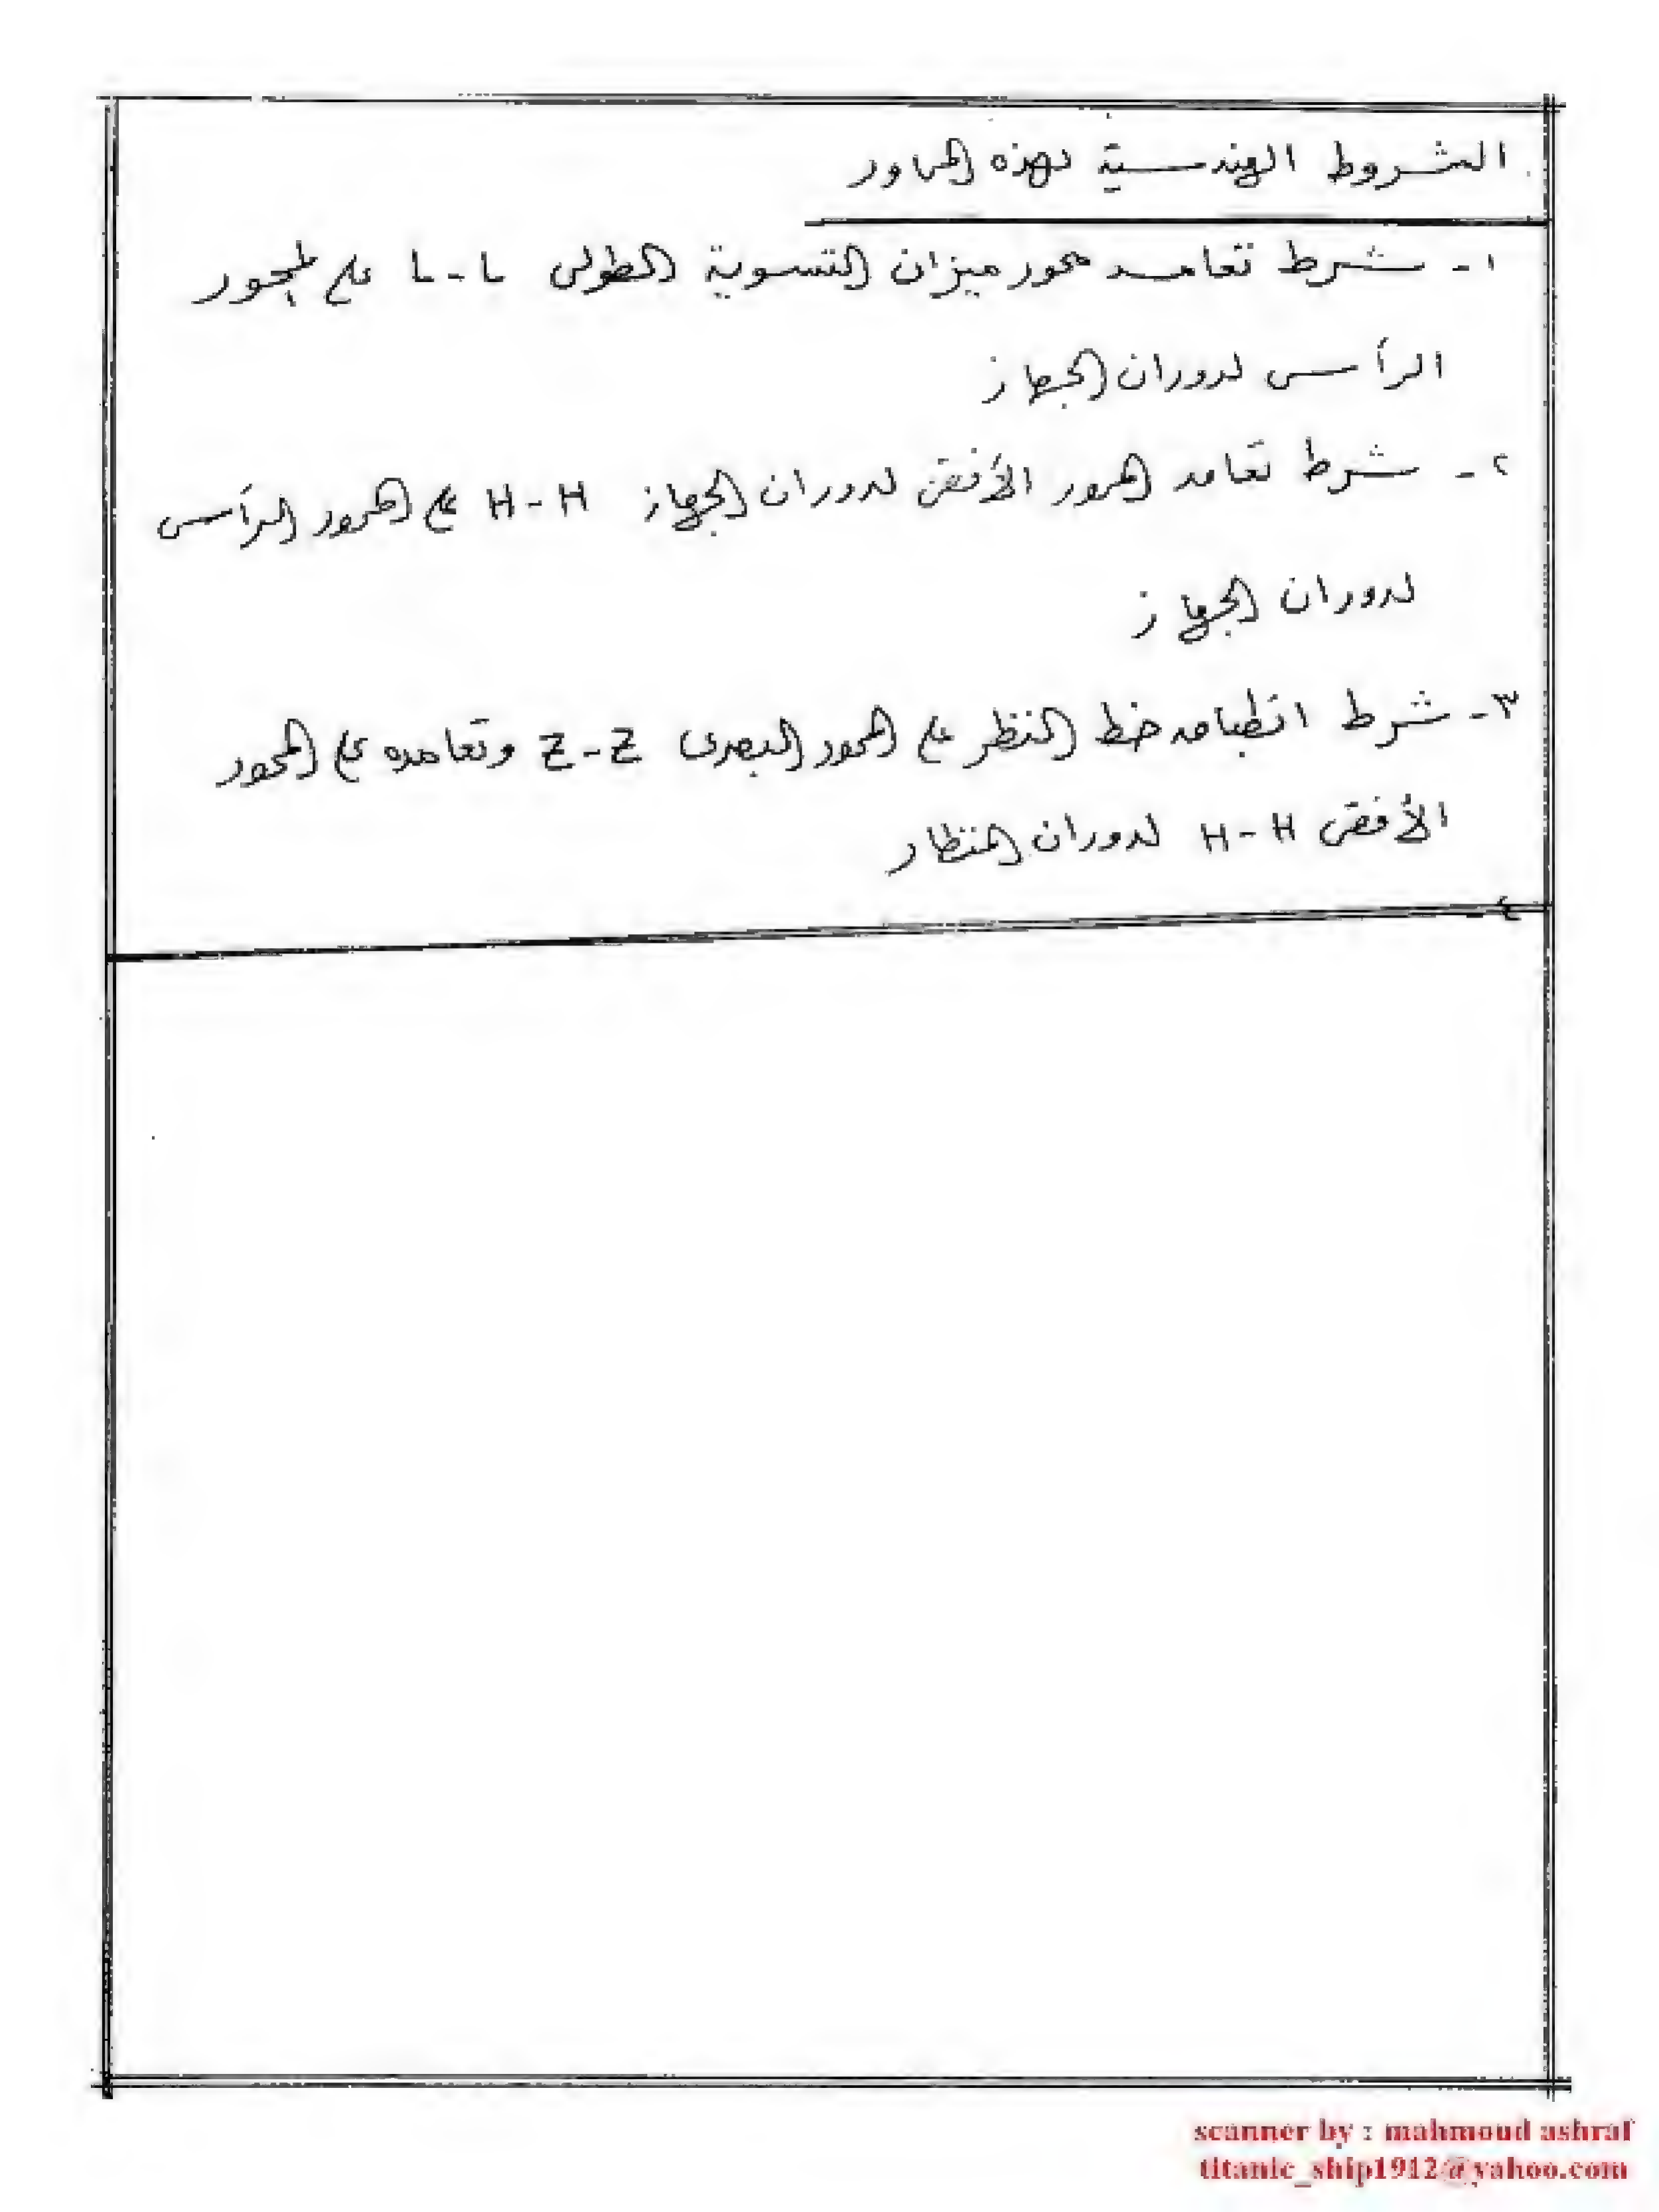 الشروط الهندسية لهذه المحاور
١- شرط تعامد محور ميزان التسوية الطولى L-L على المحور
الرأسى لدوران الجهاز
٢- شرط تعامد المحور الأفقى لدوران الجهاز H-H على المحور الرأسى
لدوران الجهاز
٣- شرط انطباق خط النظر على المحور البصرى Z-Z وتعامده على المحور
الأفقى H-H لدوران المنظار
٤
scanner by : mahmoud ashraf
titanic_ship1912@yahoo.com